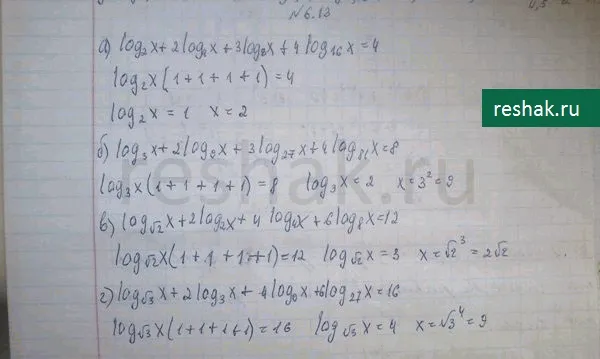 №6.13
а) log₂x+2log₄x+3log₈x+4log₁₆x=4
log₂x(1+1+1+1)=4
log₂x=1 x=2
reshak.ru
б) log₃x+2log₉x+3log₂₇x+4log₈₁x=8
log₃x(1+1+1+1)=8 log₃x=2 x=3²=9
reshak.ru
в) log√₂x+2log₂x+4log₄x+6log₈x=12
log√₂x(1+1+1+1)=12 log√₂x=3 x=√2³=2√2
г) log√₃x+2log₃x+4log₉x+6log₂₇x=16
log√₃x(1+1+1+1)=16 log√₃x=4 x=√3⁴=9